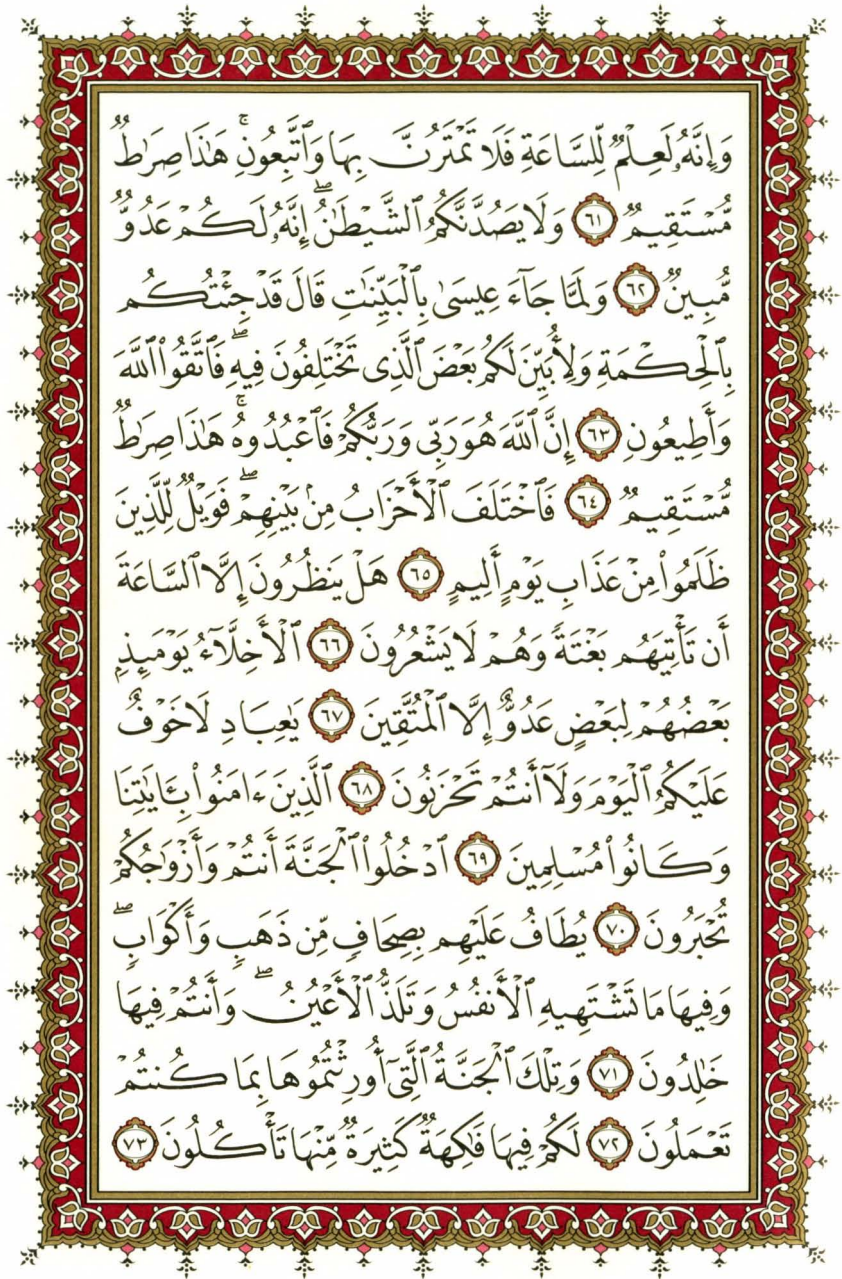 وَإِنَّهُۥ لَعِلْمٌ لِّلسَّاعَةِ فَلَا تَمْتَرُنَّ بِهَا وَٱتَّبِعُونِۚ هَٰذَا صِرَٰطٌ
مُّسْتَقِيمٌ ٦١ وَلَا يَصُدَّنَّكُمُ ٱلشَّيْطَٰنُۖ إِنَّهُۥ لَكُمْ عَدُوٌّ
مُّبِينٌ ٦٢ وَلَمَّا جَآءَ عِيسَىٰ بِٱلْبَيِّنَٰتِ قَالَ قَدْ جِئْتُكُم
بِٱلْحِكْمَةِ وَلِأُبَيِّنَ لَكُم بَعْضَ ٱلَّذِى تَخْتَلِفُونَ فِيهِۖ فَٱتَّقُوا۟ ٱللَّهَ
وَأَطِيعُونِ ٦٣ إِنَّ ٱللَّهَ هُوَ رَبِّى وَرَبُّكُمْ فَٱعْبُدُوهُۚ هَٰذَا صِرَٰطٌ
مُّسْتَقِيمٌ ٦٤ فَٱخْتَلَفَ ٱلْأَحْزَابُ مِنۢ بَيْنِهِمْۖ فَوَيْلٌ لِّلَّذِينَ
ظَلَمُوا۟ مِنْ عَذَابِ يَوْمٍ أَلِيمٍ ٦٥ هَلْ يَنظُرُونَ إِلَّا ٱلسَّاعَةَ
أَن تَأْتِيَهُم بَغْتَةً وَهُمْ لَا يَشْعُرُونَ ٦٦ ٱلْأَخِلَّآءُ يَوْمَئِذٍۭ
بَعْضُهُمْ لِبَعْضٍ عَدُوٌّ إِلَّا ٱلْمُتَّقِينَ ٦٧ يَٰعِبَادِ لَا خَوْفٌ
عَلَيْكُمُ ٱلْيَوْمَ وَلَآ أَنتُمْ تَحْزَنُونَ ٦٨ ٱلَّذِينَ ءَامَنُوا۟ بِـَٔايَٰتِنَا
وَكَانُوا۟ مُسْلِمِينَ ٦٩ ٱدْخُلُوا۟ ٱلْجَنَّةَ أَنتُمْ وَأَزْوَٰجُكُمْ
تُحْبَرُونَ ٧٠ يُطَافُ عَلَيْهِم بِصِحَافٍ مِّن ذَهَبٍ وَأَكْوَابٍۖ
وَفِيهَا مَا تَشْتَهِيهِ ٱلْأَنفُسُ وَتَلَذُّ ٱلْأَعْيُنُۖ وَأَنتُمْ فِيهَا
خَٰلِدُونَ ٧١ وَتِلْكَ ٱلْجَنَّةُ ٱلَّتِىٓ أُورِثْتُمُوهَا بِمَا كُنتُمْ
تَعْمَلُونَ ٧٢ لَكُمْ فِيهَا فَٰكِهَةٌ كَثِيرَةٌ مِّنْهَا تَأْكُلُونَ ٧٣